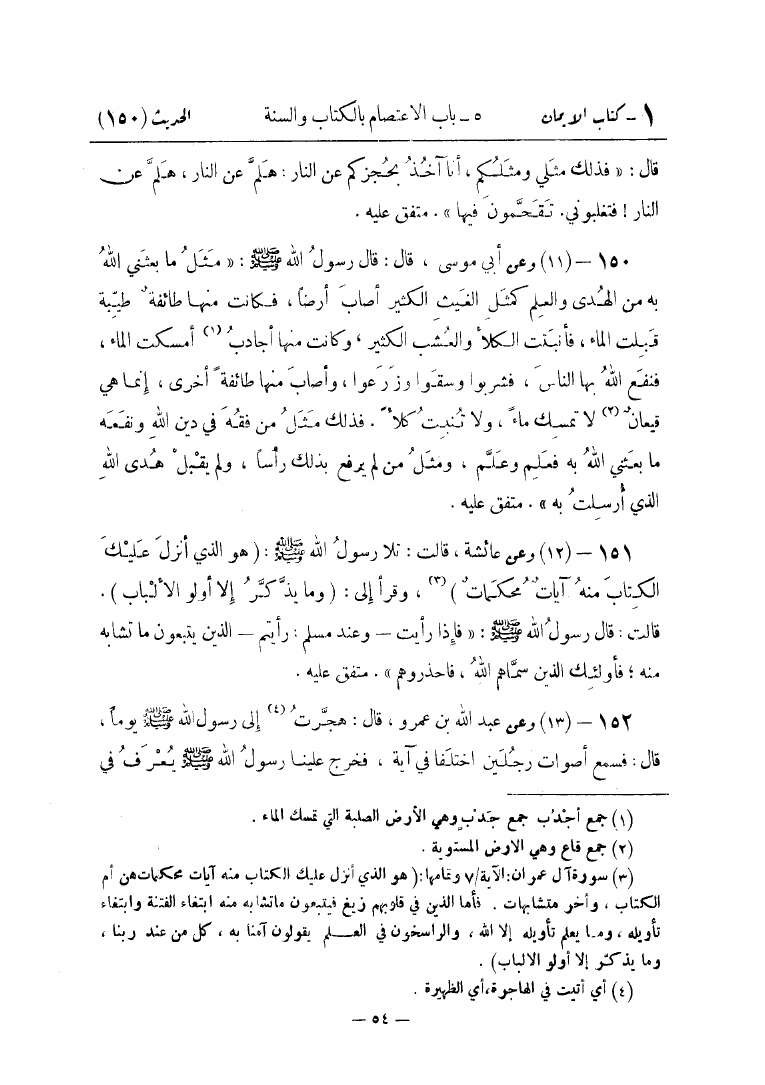 ١ – كتاب الايمان ٥ – باب الاعتصام بالكتاب والسنة الحديث (١٥٠)
قال : « فذلك مثلي ومثلُكم ، أنا آخُذُ بحُجزكم عن النار : هلمَّ عن النار ، هلمَّ عن
النار ! فتغلبوني. تَقَحَّمونَ فيها » . متفق عليه .
١٥٠ – (١١) وعن أبي موسى ، قال : قال رسولُ الله ﷺ : « مَثلُ ما بعثَني اللهُ
به من الهُدى والعلم كمثل الغيث الكثير أصابَ أرضاً ، فكانت منها طائفةٌ طيّبة
قَبِلت الماء ، فأنبتت الكلأ والعُشب الكثير ، وكانت منها أجادبُ (١) أمسكت الماء ،
فنفَع اللهُ بها الناسَ ، فشربوا وسقَوا وزَرَعوا ، وأصابَ منها طائفةً أخرى ، إنما هي
قيعانٌ (٢) لا تمسك ماءً ، ولا تُنبتُ كلأً . فذلك مَثلُ من فقُهَ في دين اللهِ ونفَعَه
ما بعثني اللهُ به فعَلِم وعلَّم ، ومثلُ من لم يرفع بذلك رأساً ، ولم يقبلْ هُدى اللهِ
الذي أُرسلتُ به » . متفق عليه .
١٥١ – (١٢) وعن عائشة ، قالت : تلا رسولُ الله ﷺ : ( هو الذي أنزلَ عَليْكَ
الكتابَ منهُ آياتٌ مُحكماتٌ ) (٣) ، وقرأ إلى : ( وما يذَّكَّرُ إلا أولو الألْباب ) .
قالت : قال رسولُ الله ﷺ : « فإذا رأيت – وعند مسلم : رأيتم – الذين يتبعون ما تشابه
منه ؛ فأولئك الذين سمَّاهم اللهُ ، فاحذروهم » . متفق عليه .
١٥٢ – (١٣) وعن عبد الله بن عمرو ، قال : هجَّرتُ (٤) إلى رسول الله ﷺ يوماً ،
قال : فسمع أصوات رجُلَين اختلَفا في آية ، فخرج علينا رسولُ الله ﷺ يُعْرَفُ في
(١) جمع أجْدُب جمع جَدْب وهي الأرض الصلبة التي تمسك الماء .
(٢) جمع قاع وهي الارض المستوية .
(٣) سورة آل عمران: الآية/٧ وتمامها: ( هو الذي أنزل عليك الكتاب منه آيات محكمات هن أم
الكتاب ، وأخر متشابهات . فأما الذين في قلوبهم زيغ فيتبعون ماتشابه منه ابتغاء الفتنة وابتغاء
تأويله ، وما يعلم تأويله إلا الله ، والراسخون في العلم يقولون آمنا به ، كل من عند ربنا ،
وما يذكر إلا أولو الالباب) .
(٤) أي أتيت في الهاجرة، أي الظهيرة .
– ٥٤ –